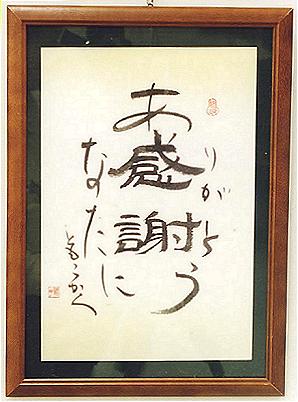 ありがとう
感謝
なたに